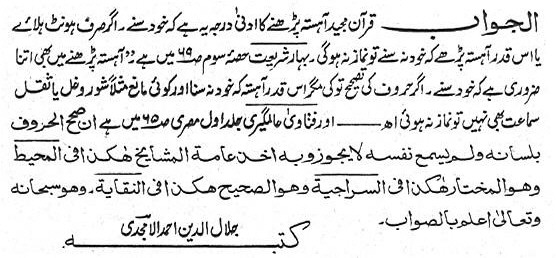 الجواب قرآن مجید آہستہ پڑھنے کا ادنیٰ درجہ یہ ہے کہ خود سنے۔ اگر صرف ہونٹ ہلائے
یا اس قدر آہستہ پڑھے کہ خود نہ سنے تو نماز نہ ہوگی۔ بہار شریعت حصہ سوم ص۶۹ میں ہے "آہستہ پڑھنے میں بھی اتنا
ضروری ہے کہ خود سنے۔ اگر حروف کی تصحیح تو کی مگر اس قدر آہستہ کہ خود نہ سنا اور کوئی مانع مثلاً شور و غل یا ثقل
سماعت بھی نہیں تو نماز نہ ہوئی اھ — اور فتاویٰ عالمگیری جلد اول مصری ص۶۵ میں ہے ان صحح الحروف
بلسانه ولم يسمع نفسه لا يجوز وبه اخذ عامة المشايخ هكذا فى المحيط
وهو المختار هكذا فى السراجية وهو الصحيح هكذا فى النقاية۔ وهو سبحانه
وتعالىٰ اعلم بالصواب۔
جلال الدین احمد الامجدی
کتبہ